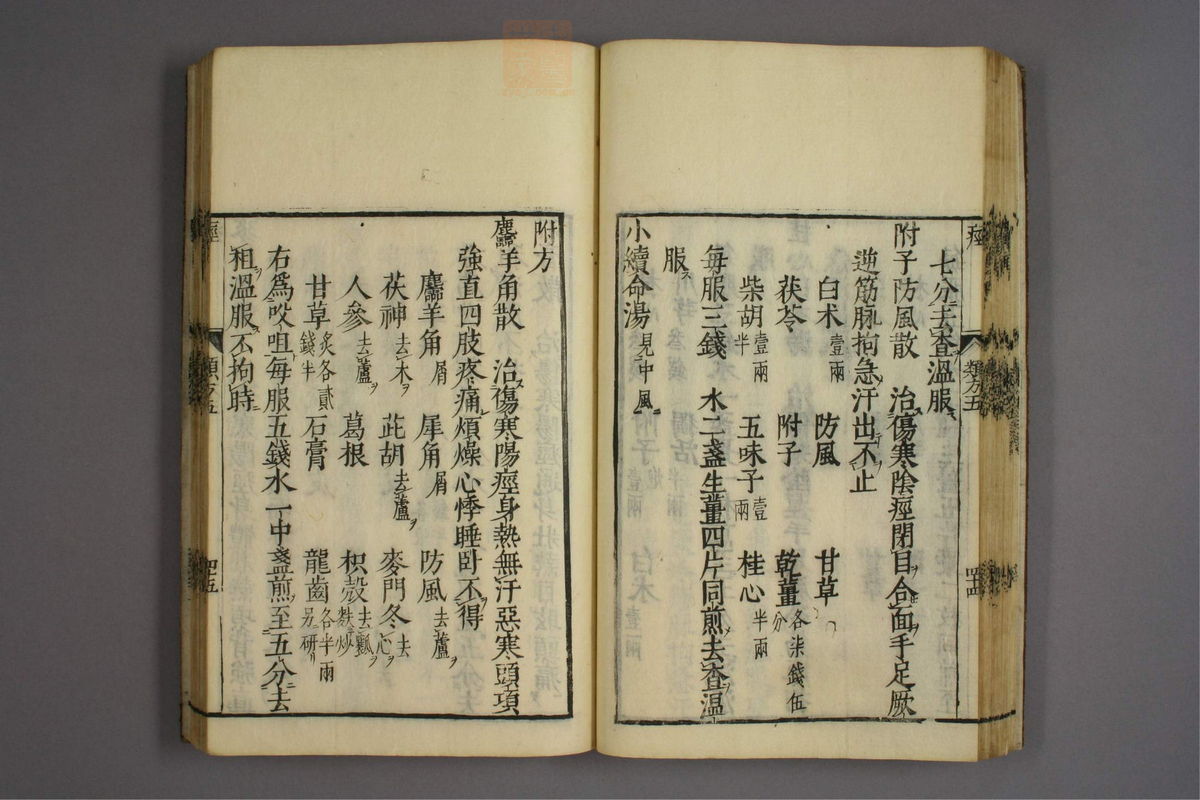 七分去査溫服
附子防風散　治傷寒陰痙閉目合面手足厥
逆筋脉拘急汗出不止
白术壹兩　防風　甘草
茯苓　附子　乾薑各柒錢伍分
柴胡壹兩半　五味子壹兩　桂心半兩
每服三錢　水二盞生薑四片同煎去査溫
服
小續命湯見中風
痙
類方五
四十四
附方
麢羊角散　治傷寒陽痙身熱無汗惡寒頭項
強直四肢疼痛煩燥心悸睡卧不得
麢羊角屑　犀角屑　防風去蘆
茯神去木　茈胡去蘆　麥門冬去心
人參去蘆　葛根　枳殼去瓤麩炒
甘草炙各貳錢半　石膏　龍齒各半兩另研
右爲㕮咀每服五錢水一中盞煎至五分去
租溫服不拘時
痙
類方五
四十五